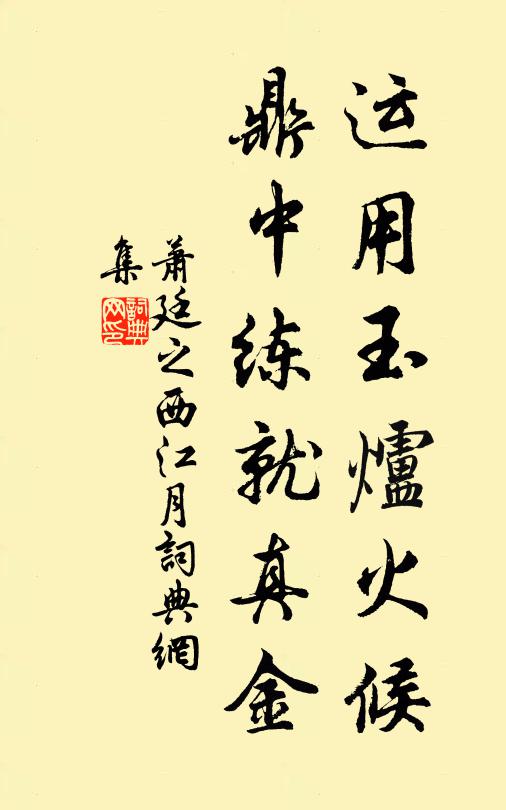 运用玉爐火候
鼎中练就真金
萧廷之西江月詞典網
集
詞典
网印